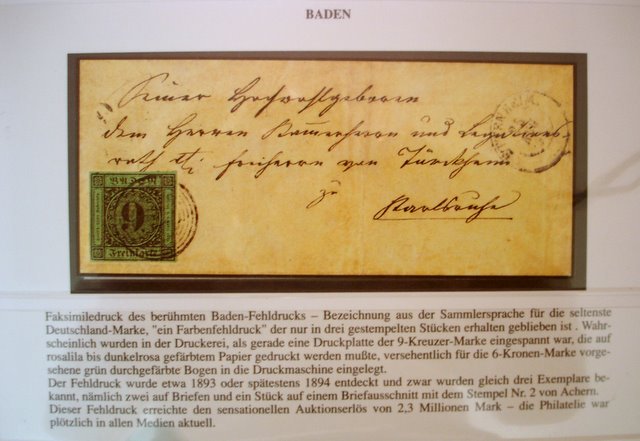 BADEN
Seiner Hochwohlgeboren
dem Herren Kammerherrn und Legations
rath Freiherrn von Türckheim
zu
Karlsruhe
BADEN
9
Freimarke
Faksimiledruck des berühmten Baden-Fehldrucks – Bezeichnung aus der Sammlersprache für die seltenste
Deutschland-Marke, "ein Farbenfehldruck" der nur in drei gestempelten Stücken erhalten geblieben ist . Wahr-
scheinlich wurden in der Druckerei, als gerade eine Druckplatte der 9-Kreuzer-Marke eingespannt war, die auf
rosalila bis dunkelrosa gefärbtem Papier gedruckt werden mußte, versehentlich für die 6-Kronen-Marke vorge-
sehene grün durchgefärbte Bogen in die Druckmaschine eingelegt.
Der Fehldruck wurde etwa 1893 oder spätestens 1894 entdeckt und zwar wurden gleich drei Exemplare be-
kannt, nämlich zwei auf Briefen und ein Stück auf einem Briefausschnitt mit dem Stempel Nr. 2 von Achern.
Dieser Fehldruck erreichte den sensationellen Auktionserlös von 2,3 Millionen Mark – die Philatelie war
plötzlich in allen Medien aktuell.